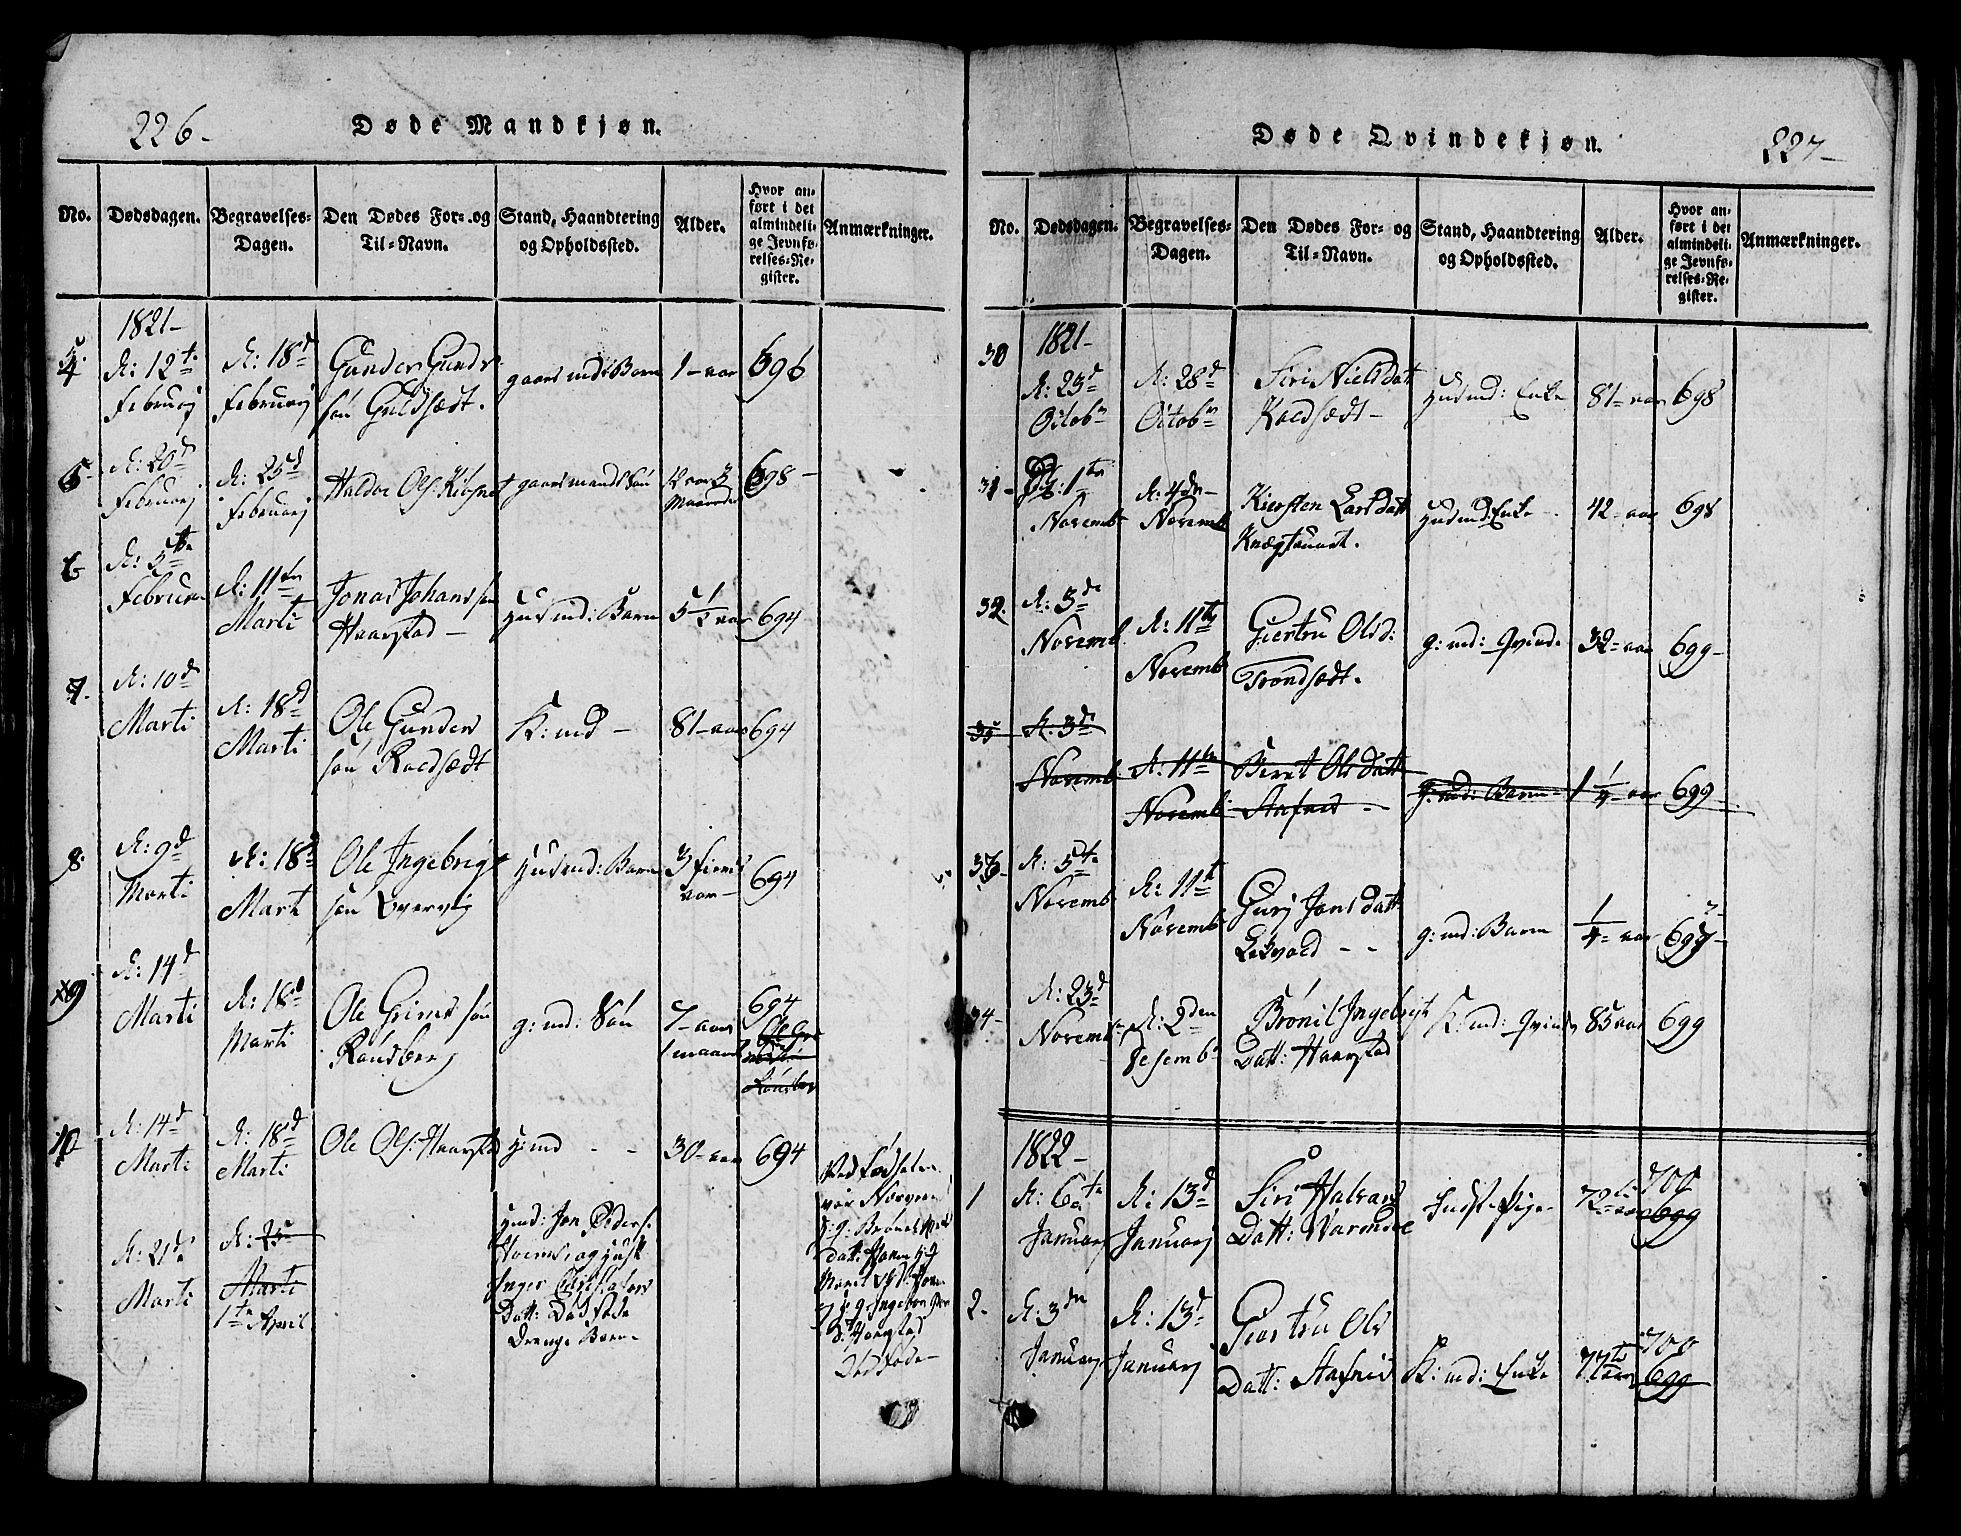 226-
Døde Mandkjøn.
No.
Dødsdagen.
Begravelses-
Dagen.
Den Dødes For- og
Til-Navn.
Stand, Haandtering
og Opholdssted.
Alder.
Hvor an-
ført i det
almindeli-
ge Jevnfø-
relses-Re-
gister.
Anmærkninger.
1821-
4
d: 12te
Februarj
d: 18d
Februarj
Gunder Gunder
søn Guldsædt.
gaardmds Barn
1-aar
696
5
d: 20d
Februarj
d: 25d
Februarj
Haldor Ols:
gaardmands Søn
12 aar 3
Maaneder
698-
6
d: 5te
Februar
d: 11te
Marti
Jonas Johans søn
Haarstad-
Husmd: Barn
5 1/2 aar
694
7.
d: 10d
Marti
d: 18d
Marti
Ole Gunder
søn Roedsædt
K: md -
81-aar
694
8:
d: 9d
Marti
d: 18d
Marti
Ole Ingebrigt
søn Løvervig
Husmd: Barn
3 fierd
aar-
694
9
d: 14d
Marti
d: 18d
Marti
Ole Grims søn
Rønsberg
g: md: Søn
7-aar
1 maaned
694
10
d: 14d
Marti
d: 18d
Marti
Ole Ols: Haarstad
H: md - -
30-aar
694
d: 21de
Marti
d: 25
Marti
1te April
Hmd: Jon Peders:
og Hust
Inger
Datt: Dødføde
Drenge Barn-
Ved Fødselen
var
Dødføde-
Døde Qvindekjøn.
227-
No.
Dødsdagen.
Begravelses-
Dagen.
Den Dødes For- og
Til-Navn.
Stand, Haandtering
og Opholdssted.
Alder.
Hvor an-
ført i det
almindeli-
ge Jevnfø-
relses-Re-
gister.
Anmærkninger.
1821-
30
d: 23d
Octobr
d: 28d
Octobr
Siri Nielsdatt
Roedsædt-
Husmd: Enke
81-aar
698
31-
d: 1te
Novemb
d: 4de-
Novemb
Kiersten Larsdatt
Husmd: Enke -
42-aar
698
32.
d: 3de
Novemb
d: 11te
Novemb
Giertru Olsd:
Trondsædt.
g: md: Qvinde
32-aar
699-
33
d: 3de
Novemb
d: 11te
Novemb
Beret Olsdatt
Stafnes -
g: md: Barn-
1 1/4-aar
699
33-
d: 5te
Novemb
d: 11te
Novemb
Gurj Jons datt
Eckvold - -
g: md: Barn
1/4-aar
697-
34-
d: 23d
Novemb
d: 2den
Desembr
Brønil Ingebrigt
Datt: Haarstad
K: md: Qvinde
85 aar
699
1822-
1
d: 6te
Januarj
d: 13d
Januarj
Siri Halvard
Datt:
Indst: Pige-
72-aar
700
699
2-
d: 3de
Januarj
d: 13d
Januarj
Giertru Ols
Datt: Stafnes
K: md: Enke
77 aar
700
699